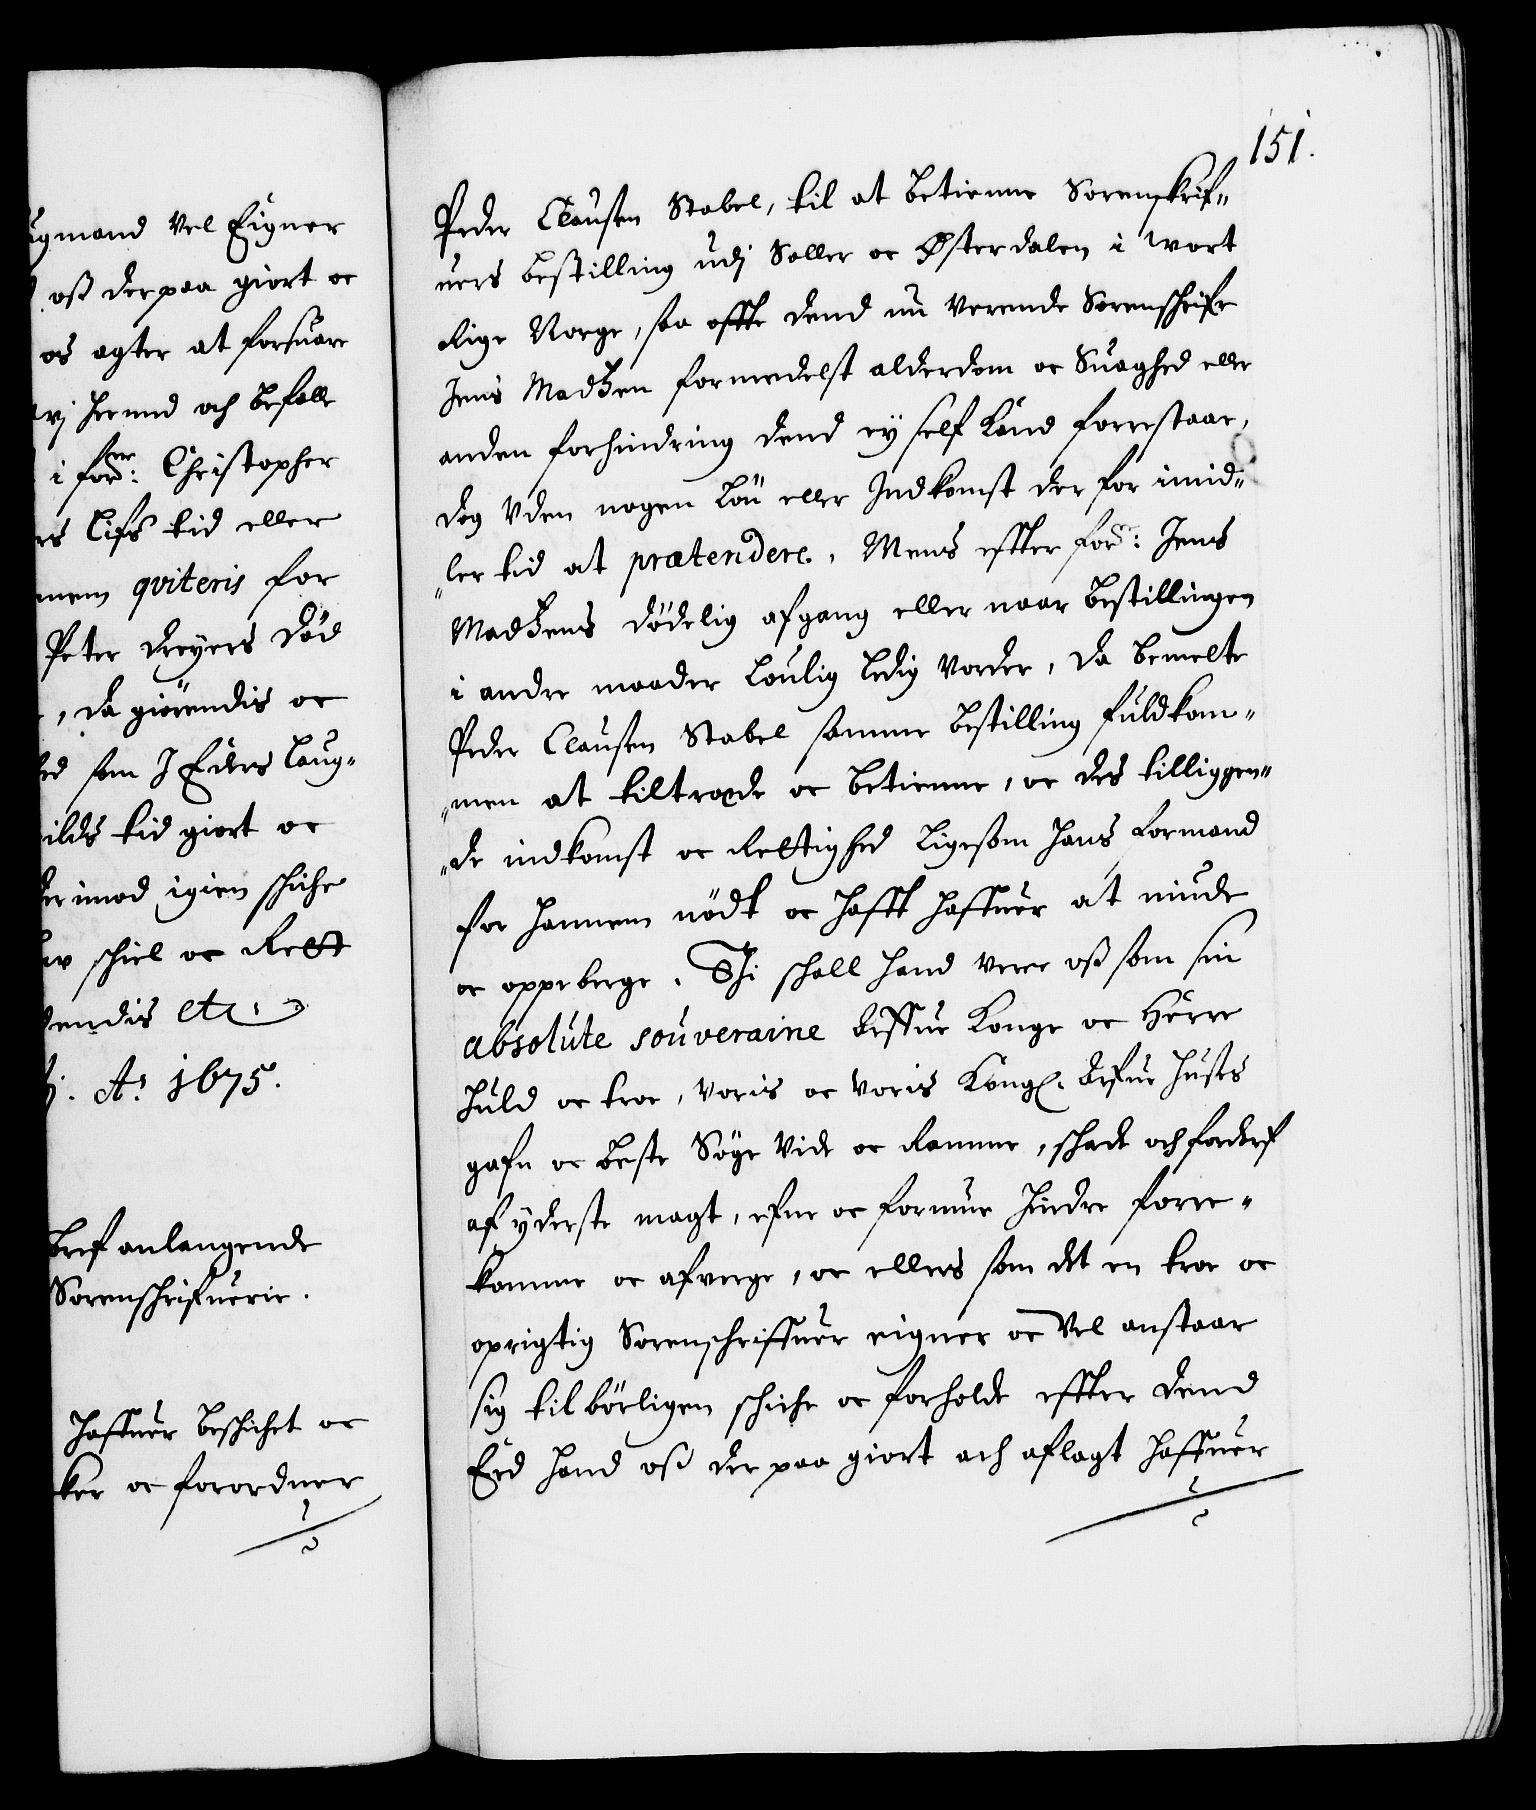 ugmand vel Eigner
oß derpaa giort oc
os agter at forsuare
vj herimd och befalle
i forne: Christopher
rs lifs tid eller
nem qviteris for
Peter Dreyers Død
, da giørendis oc
hed som J Eders laug-
ilds tid giort oc
der imod igien schiche
schiel oc Rett
endis etc:
Ao 1675.
bref anlangende
Sorenschrifuerie.
haffuer beschichet oc
ker oc forordner
151.
Peder Clausen Stabel, til at betienne Sorenskrif-
uers bestilling udj Soller oc Østerdalen i wort
Rige Norge, saa offte dend nu verende Sorenschrifr
Jens Madtzen formedelst alderdom oc Suaghed eller
anden forhindring dend ey self kand forrestaar,
dog uden nogen Løn eller Indkomst der for imid-
ler tid at prætendere. Mens effter forne: Jens
Madtzens dødelig afgang eller naar bestillingen
i andre maader loulig ledig vorder, da bemelte
Peder Clausen Stabel samme bestilling fuldkom-
men at tiltræde oc betienne, oc des tilliggen-
de indkomst oc Rettighed ligesom hans formand
for hannem nødt oc hafft haffuer at niude
oc oppeberge. Thi schall hand vere oß som sin
absolute souveraine Arffue Konge oc Herre
huld oc troe, voris oc voris Kongl. Arfue Huses
gafn oc beste Søge vide oc Ramme, schade och forderf
af yderste magt, efne oc formue hindre forre-
komme oc afverge, oc ellers som det en troe oc
oprigtig Sorenschriffuer eigner oc vel anstaar
sig tilbørligen schiche oc forholde effter dend
Eed hand oß der paa giort och aflagt haffuer